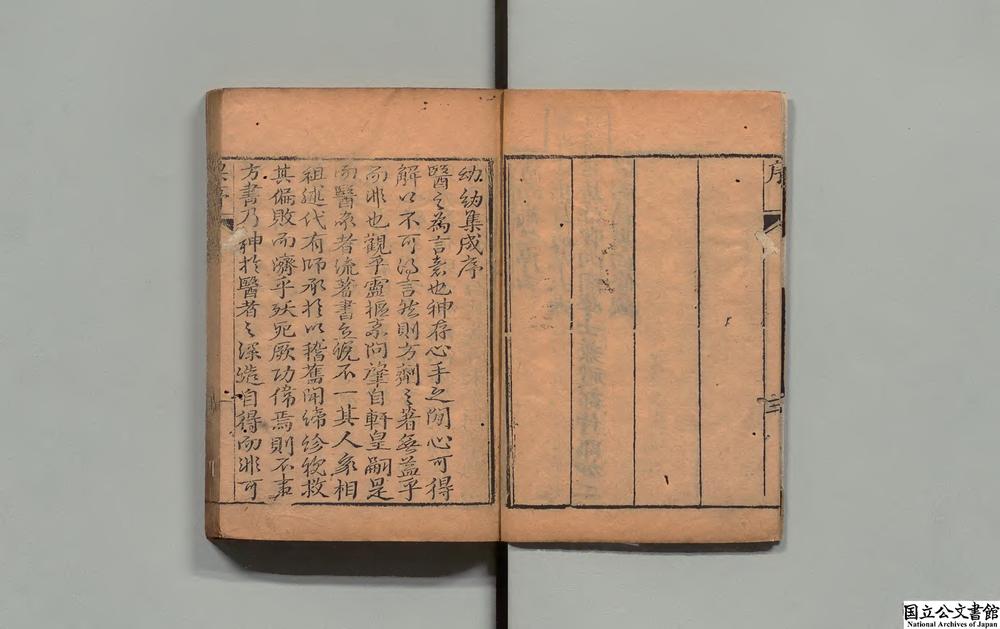 序
三
幼幼集成序
醫之為言意也神存心手之間心可得
解口不可得言然則方劑之著無益乎
而非也觀乎靈樞素問肇自軒皇嗣是
而醫家者流著書立說不一其人家相
祖述代有師承於以稽舊聞締珍秘救
其偏敗而濟乎殀死厥功偉焉則不事
方書乃神於醫者之深造自得而非可
国立公文書館
National Archives of Japan